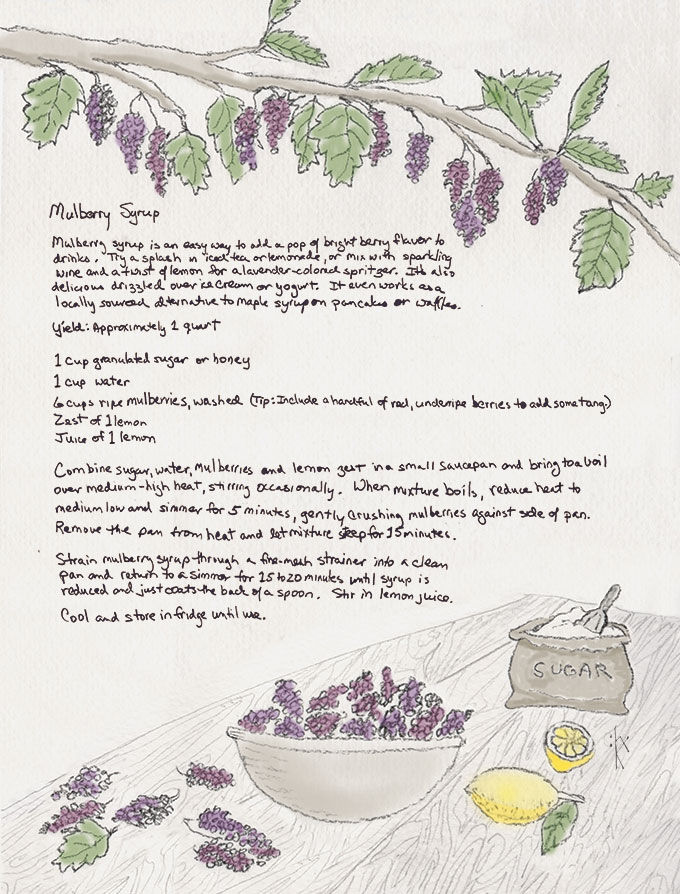 Mulberry Syrup
Mulberry syrup is an easy way to add a pop of bright berry flavor to
drinks. Try a splash in iced tea or lemonade, or mix with sparkling
wine and a twist of lemon for a lavender-colored spritzer. It's also
delicious drizzled over ice cream or yogurt. It even works as a
locally sourced alternative to maple syrup on pancakes or waffles.
Yield: Approximately 1 quart
1 cup granulated sugar or honey
1 cup water
6 cups ripe mulberries, washed (Tip: Include a handful of red, underripe berries to add some tang.)
Zest of 1 lemon
Juice of 1 lemon
Combine sugar, water, mulberries and lemon zest in a small saucepan and bring to a boil
over medium-high heat, stirring occasionally. When mixture boils, reduce heat to
medium low and simmer for 5 minutes, gently crushing mulberries against side of pan.
Remove the pan from heat and let mixture steep for 15 minutes.
Strain mulberry syrup through a fine-mesh strainer into a clean
pan and return to a simmer for 15 to 20 minutes until syrup is
reduced and just coats the back of a spoon. Stir in lemon juice.
Cool and store in fridge until use.
SUGAR